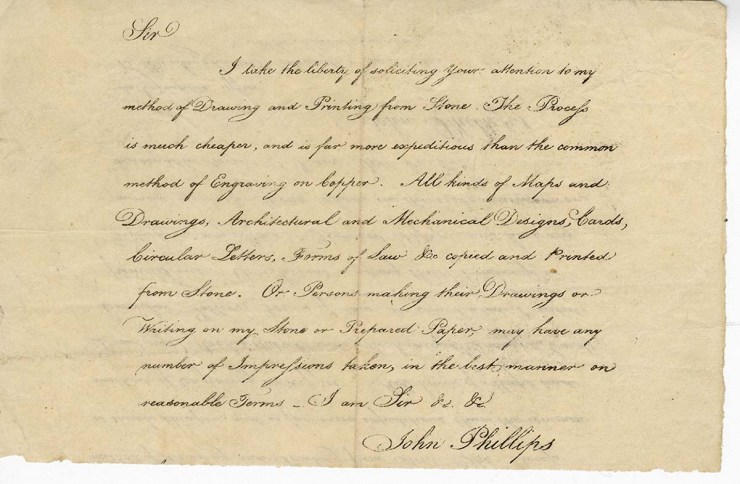 Sir
I take the liberty of soliciting Your attention to my
method of Drawing and Printing from Stone. The Process
is much cheaper, and is far more expeditious than the common
method of Engraving on Copper. All kinds of Maps and
Drawings, Architectural and Mechanical Designs, Cards,
Circular Letters, Forms of Law &c copied and Printed
from Stone. Or Persons making their Drawings or
Writing on my Stone or Prepared Paper, may have any
number of Impressions taken, in the best manner on
reasonable Terms _ I am Sir &c. &c.
John Phillips